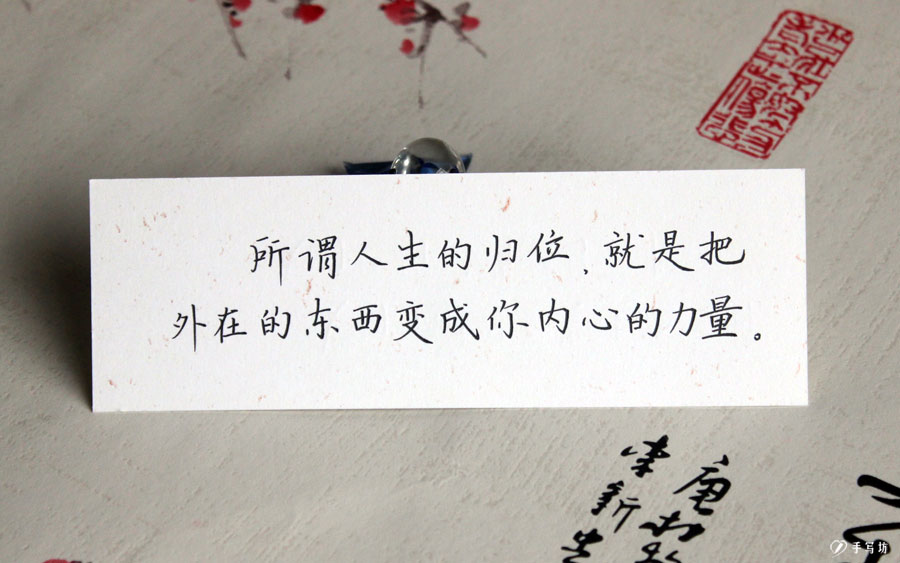 所谓人生的归位，就是把
外在的东西变成你内心的力量。
手写坊